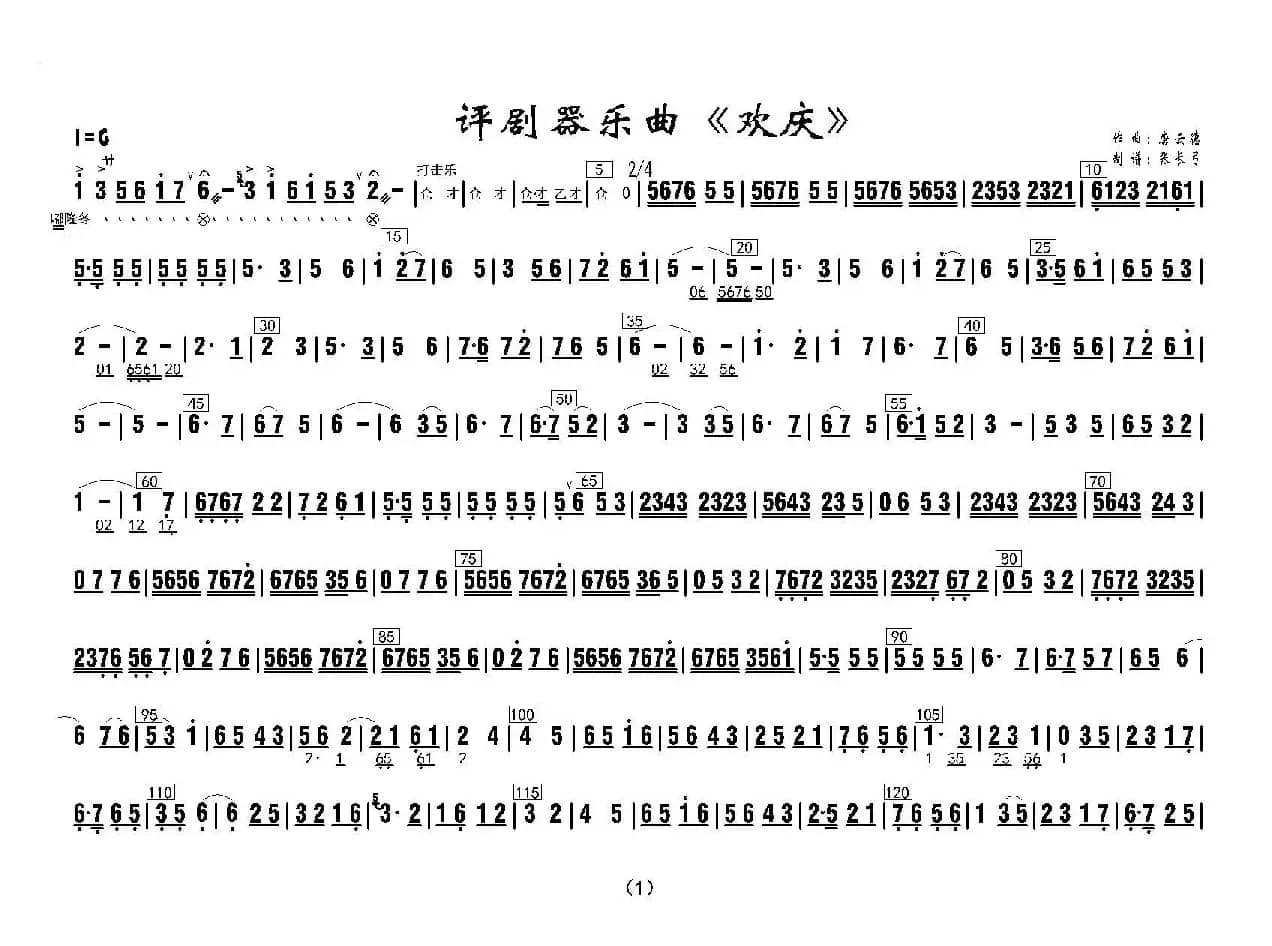 评剧器乐曲《欢庆》
1=G
作曲：唐云德
制谱：张长弓
廾 打击乐 5 2/4 10
1 3 5 6 1 7 6 – 3 1 6 1 5 3 2 – | 仓 才 | 仓 才 | 仓才 乙才 | 仓 0 | 5676 5 5 | 5676 5 5 | 5676 5653 | 2353 2321 | 6123 2161 |
隆冬
15 20 25
5·5 5 5 | 5 5 5 5 | 5· 3 | 5 6 | 1 2 7 | 6 5 | 3 5 6 | 7 2 6 1 | 5 – | 5 – | 5· 3 | 5 6 | 1 2 7 | 6 5 | 3·5 6 1 | 6 5 5 3 |
06 5676 50
30 35 40
2 – | 2 – | 2· 1 | 2 3 | 5· 3 | 5 6 | 7·6 7 2 | 7 6 5 | 6 – | 6 – | 1· 2 | 1 7 | 6· 7 | 6 5 | 3·6 5 6 | 7 2 6 1 |
01 6561 20 02 32 56
45 50 55
5 – | 5 – | 6· 7 | 6 7 5 | 6 – | 6 3 5 | 6· 7 | 6·7 5 2 | 3 – | 3 3 5 | 6· 7 | 6 7 5 | 6·1 5 2 | 3 – | 5 3 5 | 6 5 3 2 |
60 65 70
1 – | 1 7 | 6767 2 2 | 7 2 6 1 | 5·5 5 5 | 5 5 5 5 | 5 6 5 3 | 2343 2323 | 5643 23 5 | 0 6 5 3 | 2343 2323 | 5643 24 3 |
02 12 17
75 80
0 7 7 6 | 5656 7672 | 6765 35 6 | 0 7 7 6 | 5656 7672 | 6765 36 5 | 0 5 3 2 | 7672 3235 | 2327 67 2 | 0 5 3 2 | 7672 3235 |
85 90
2376 56 7 | 0 2 7 6 | 5656 7672 | 6765 35 6 | 0 2 7 6 | 5656 7672 | 6765 3561 | 5·5 5 5 | 5 5 5 5 | 6· 7 | 6·7 5 7 | 6 5 6 |
95 100 105
6 7 6 | 5 3 1 | 6 5 4 3 | 5 6 2 | 2 1 6 1 | 2 4 | 4 5 | 6 5 1 6 | 5 6 4 3 | 2 5 2 1 | 7 6 5 6 | 1· 3 | 2 3 1 | 0 3 5 | 2 3 1 7 |
2· 1 65 61 2 1 35 23 56 1
110 115 120
6·7 6 5 | 3 5 6 | 6 2 5 | 3 2 1 6 | 3· 2 | 1 6 1 2 | 3 2 | 4 5 | 6 5 1 6 | 5 6 4 3 | 2·5 2 1 | 7 6 5 6 | 1 3 5 | 2 3 1 7 | 6·7 2 5 |
（1）